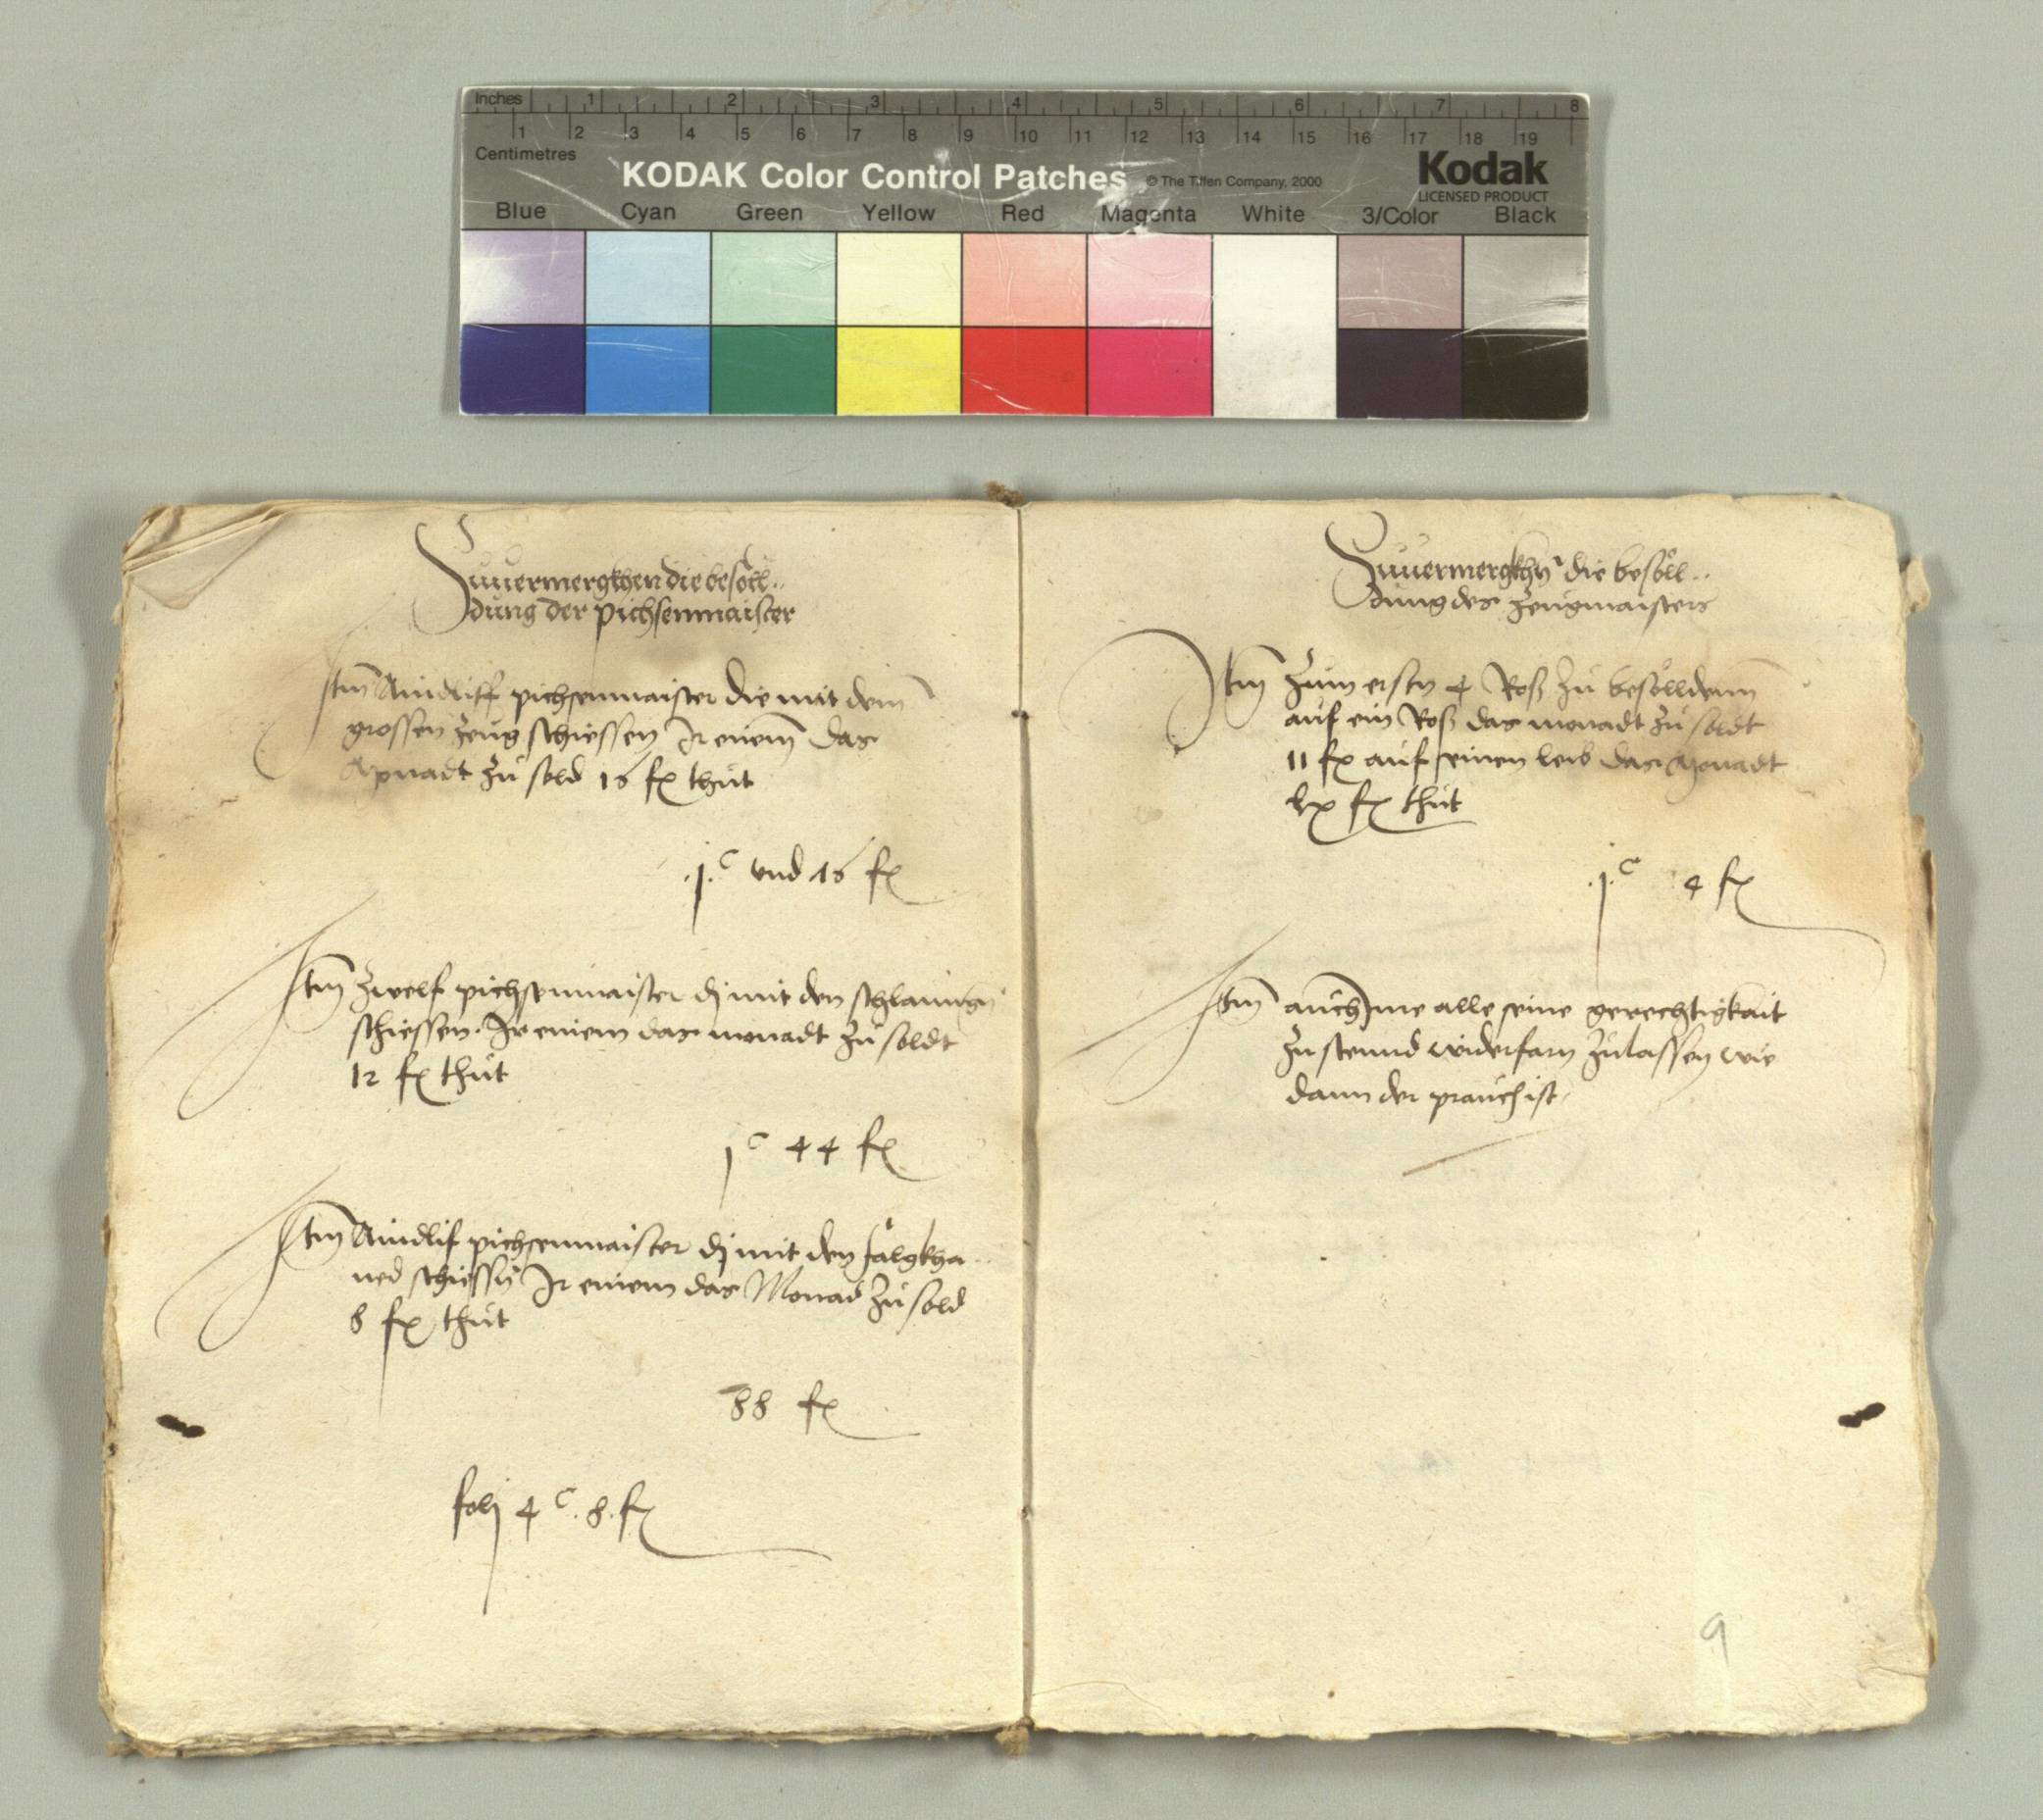 Inches 1 2 3 4 5 6 7 8
1 2 3 4 5 6 7 8 9 10 11 12 13 14 15 16 17 18 19
Centimetres
KODAK Color Control Patches © The Tiffen Company, 2000 Kodak
LICENSED PRODUCT
Blue Cyan Green Yellow Red Magenta White 3/Color Black
Zuuermergkhen die besöll..
dung der pichsenmaister
Itm Aindliff pichsenmaister die mit dem
grossen zeug schiessen Ir einem das
Monadt zu sold 16 fl thut
.j.c vnd 16 fl
Itm zwelf pichsenmaister dj mit den schlanngn
schiessen. Ir einem das monadt zu soldt
12 fl thut
jc 44 fl
Itm Aindlif pichsenmaister dj mit den falgkha..
ned schiessn Ir einem das Monad zu sold
8 fl thut
88 fl
folj 4 c. 8. fl
Zuuermergkhn die besöll..
dung des zeugmaisters
Itm zum erstn 4 Ross zu besölldenn
auf ein Ross das monadt zu soldt
11 fl auf seinen leib das Monadt
lx fl thut
.j.c 4 fl
Itm auch ime alle seine gerechtigkait
zusteund widerfarn zulassen wie
dann der prauch ist
9